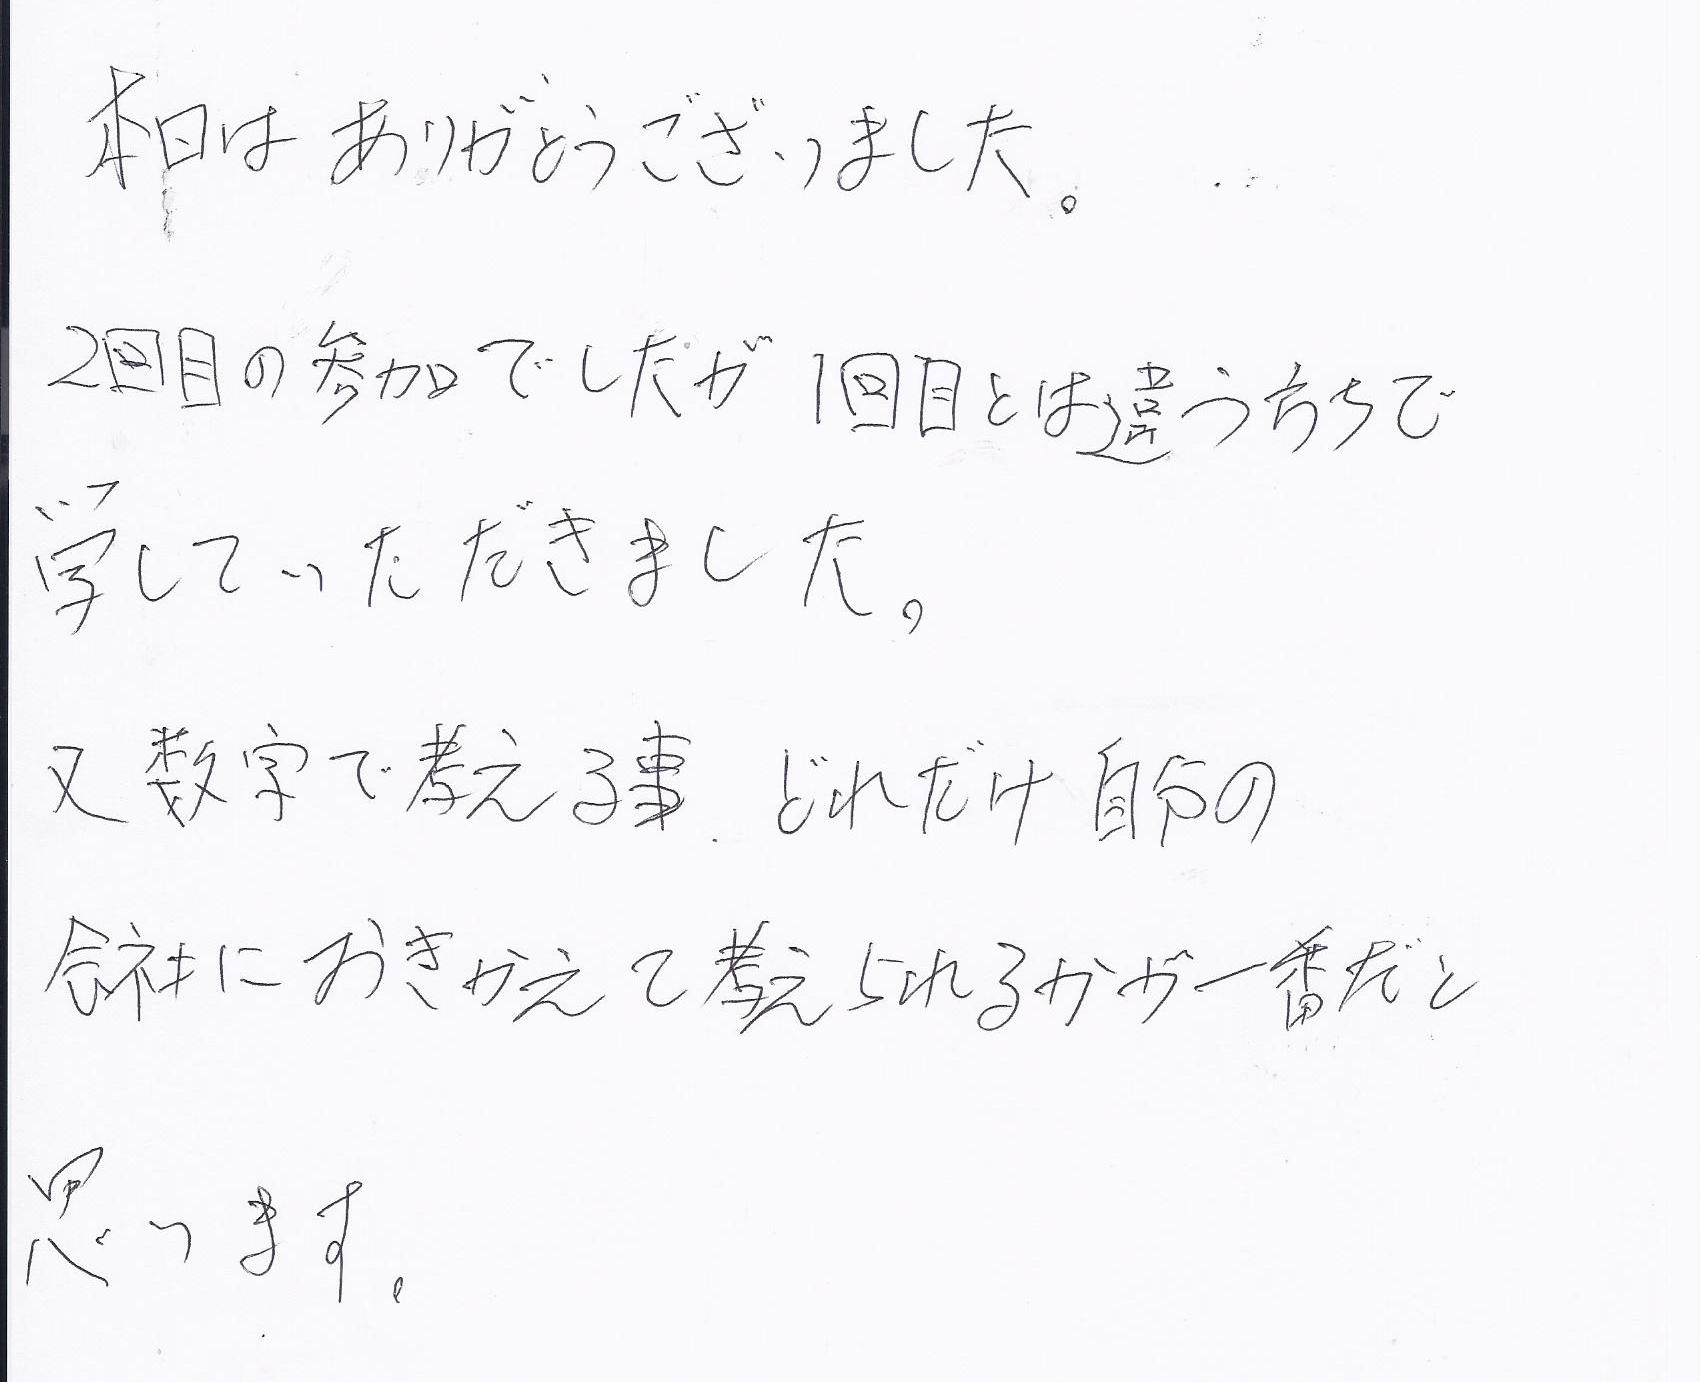 本日はありがとうございました。
2回目の参加でしたが 1回目とは違うかちで
学していただきました。
又数字で考える事、どれだけ自分の
会社におきかえて考えられるかが一番だと
思います。